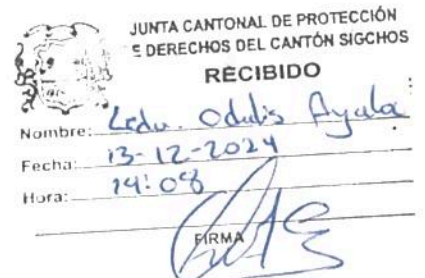 JUNTA CANTONAL DE PROTECCIÓN
E DERECHOS DEL CANTÓN SIGCHOS
RECIBIDO
Nombre: Lcdo. Odulis Ayala
Fecha: 13-12-2024
Hora: 14:08
FIRMA